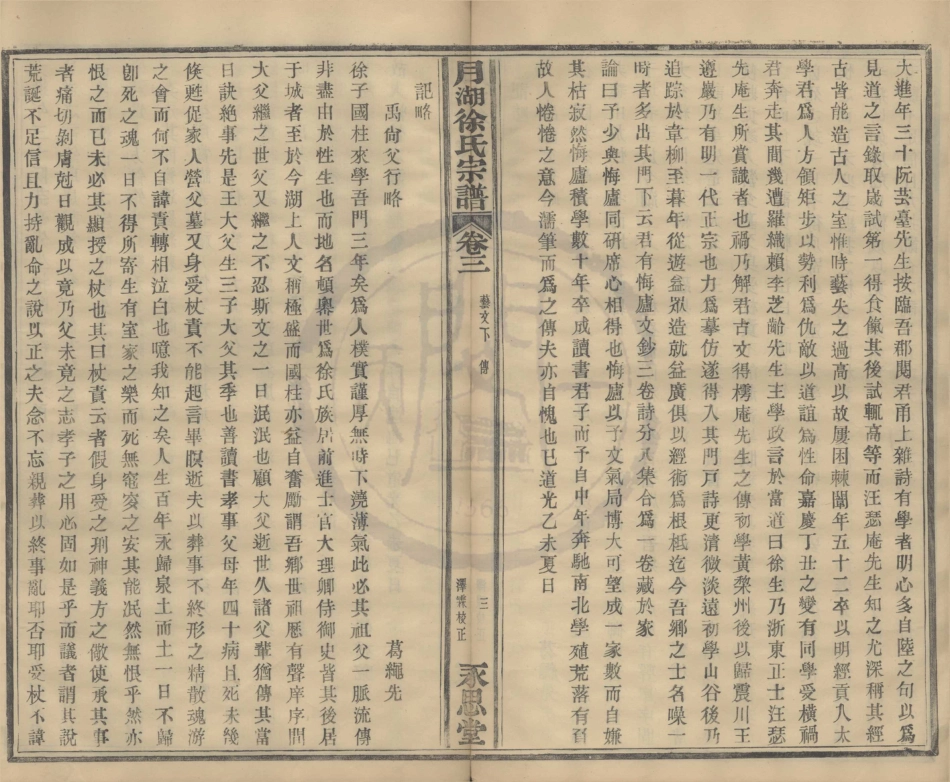 大進年三十阮芸臺先生按臨吾郡閱君甬上雜詩有學者明心多自陸之句以爲
見道之言錄取歲試第一得食餼其後試輒高等而汪瑟庵先生知之尤深稱其經
古皆能造古人之室惟時藝失之過高以故屢困棘闈年五十二卒以明經貢入太
學君爲人方領矩步以勢利爲仇敵以道誼爲性命嘉慶丁丑之變有同學愛橫禍
君奔走其間幾遭羅織賴李芝齡先生主學政言於當道曰徐生乃浙東正士汪瑟
先庵生所賞識者也禍乃解君古文得樗庵先生之傳初學黃棃州後以歸震川王
遵巖乃有明一代正宗也力爲摹仿遂得入其門戸詩更清微淡遠初學山谷後乃
追踪於韋柳至暮年從遊益眾造就益廣俱以經術爲根柢迄今吾鄉之士名噪一
時者多出其門下云君有悔廬文鈔三卷詩分八集合爲一卷藏於家
論曰予少與悔廬同硏席心相得也悔廬以予文氣局博大可望成一家數而自嫌
其枯寂然悔廬積學數十年卒成讀書君子而予自中年奔馳南北學殖荒落有負
故人惓惓之意今濡筆而爲之傳夫亦自愧也已道光乙未夏日
月湖徐氏宗譜
卷三
藝文下 傳
三
澤霖校正
永思堂
記略
禹尚父行略
葛繩先
徐子國柱來學吾門三年矣爲人樸實謹厚無時下澆薄氣此必其祖父一脈流傳
非盡由於性生也而地名頓嶴世爲徐氏族居前進士官大理卿侍御史皆其後居
于城者至於今湖上人文稱極盛而國柱亦益自奮勵謂吾鄉世祖歷有聲庠序間
大父繼之世父又繼之不忍斯文之一日泯泯也顧大父逝世久諸父輩猶傳其當
日訣絶事先是王大父生三子大父其季也善讀書孝事父母年四十病且死未幾
倏甦促家人營父墓又身愛杖責不能起言畢瞑逝夫以葬事不終形之精散魂游
之會而何不自諱責轉相泣白也噫我知之矣人生百年永歸泉土而土一日不歸
卽死之魂一日不得所寄生有室家之樂而死無窀穸之安其能泯然無恨乎然亦
恨之而已未必其顯授之杖也其曰杖責云者假身受之刑神義方之儆使承其事
者痛切剝膚尅日觀成以竟乃父未竟之志孝子之用心固如是乎而議者謂其說
荒誕不足信且力持亂命之說以正之夫念不忘親葬以終事亂耶否耶受杖不諱